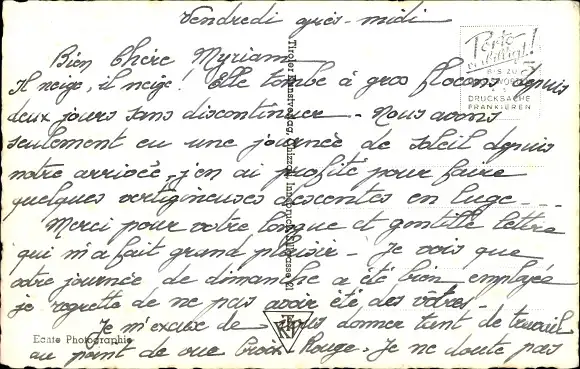 Vendredi après-midi
Bien Chère Myriam
Il neige, il neige! Elle tombe à gros flocons depuis
deux jours sans discontinuer - Nous avons
seulement eu une journée de soleil depuis
notre arrivée, j'en ai profité pour faire
quelques vertigineuses descentes en luge - - -
Merci pour votre longue et gentille lettre
qui m'a fait grand plaisir - Je vois que
votre journée de dimanche a été bien employée
je regrette de ne pas avoir été des vôtres -
Je m'excuse de vous donner tant de travail
au point de vue Croix Rouge - Je ne doute pas
Porto
verbilligt!
BIS ZU 5
WORTE
DRUCKSACHE
FRANKIEREN
Tiroler Kunstverlag Chizzali, Innsbruck
Echte Photographie